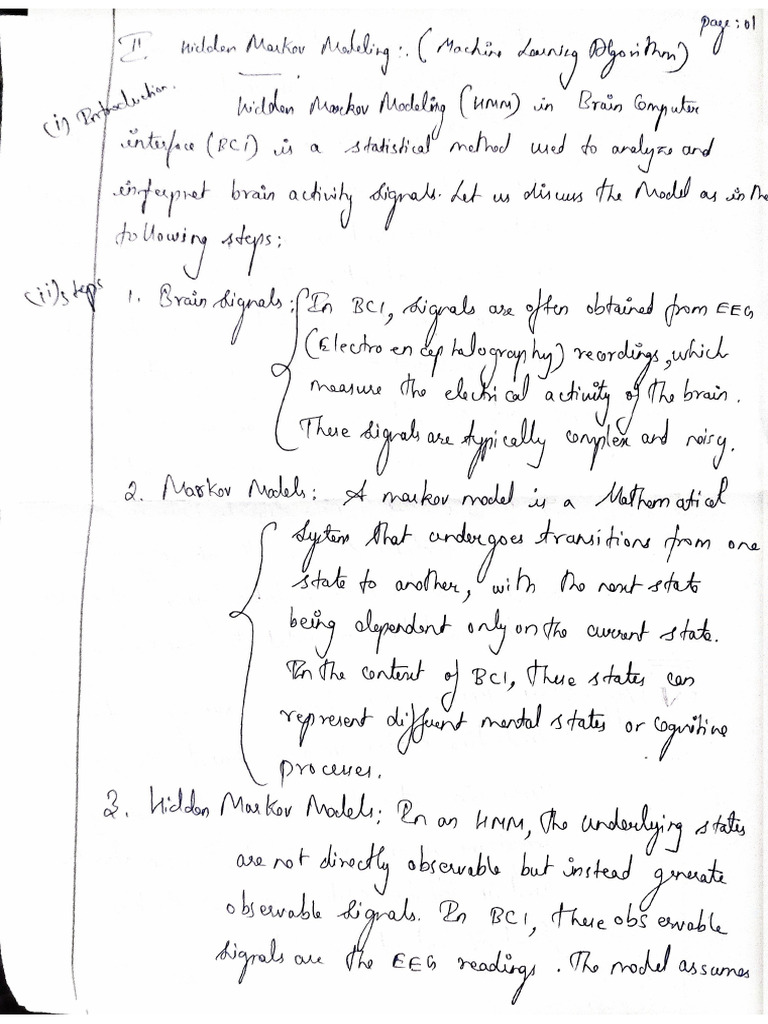 page: 01
II Hidden Markov Modeling:. (Machine Learning Algorithm)
(i) Introduction.
Hidden Markov Modeling (HMM) in Brain Computer
interface (BCI) is a statistical method used to analyze and
interpret brain activity signals. Let us discuss the Model as in the
following steps:
(ii) steps
1. Brain Signals: In BCI, signals are often obtained from EEG
(Electro encephalography) recordings, which
measure the electrical activity of the brain.
These signals are typically complex and noisy.
2. Markov Models: A markov model is a Mathematical
System that undergoes transitions from one
state to another, with the next state
being dependent only on the current state.
In the context of BCI, these states can
represent different mental states or cognitive
processes.
3. Hidden Markov Models: In an HMM, the underlying states
are not directly observable but instead generate
observable signals. In BCI, these observable
signals are the EEG readings. The model assumes